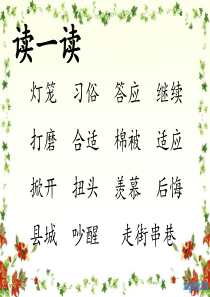 读一读
灯笼 习俗 答应 继续
打磨 合适 棉被 适应
掀开 扭头 羡慕 后悔
县城 吵醒 走街串巷